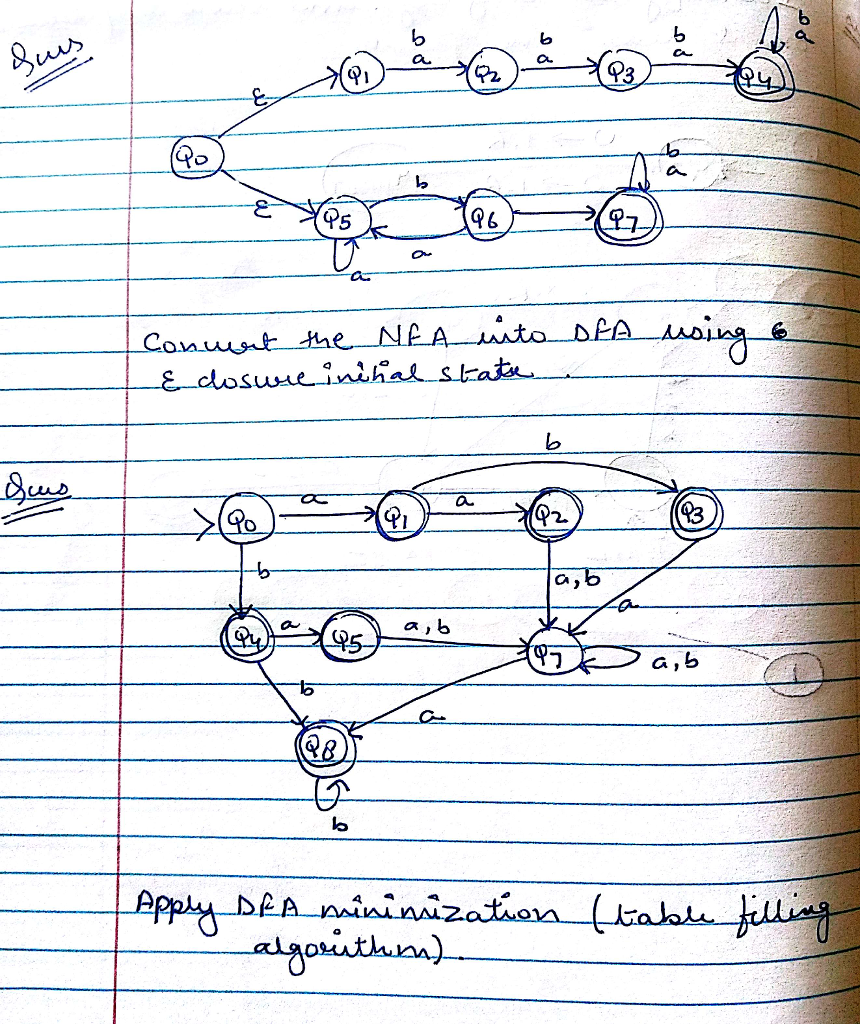 Sums
b b b b
a a a a
Q1 Q2 Q3 Q4
ε
Q0
ε
b b
a
Q5 Q6 Q7
a
a
Convert the NFA into DFA using
ε closure initial state .
Sums
b
Q0 a Q1 a Q2 Q3
b a,b a
Q4 a Q5 a,b Q7 a,b
1
b a
Q8
b
Apply DFA minimization (table filling
algorithm).